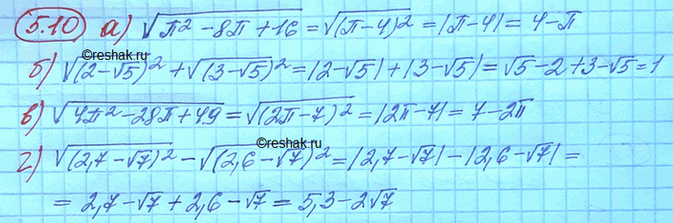 5.10 а) √(π² - 8π + 16) = √(π - 4)² = |π - 4| = 4 - π
©reshak.ru
б) √(2 - √5)² + √(3 - √5)² = |2 - √5| + |3 - √5| = √5 - 2 + 3 - √5 = 1
в) √(4π² - 28π + 49) = √(2π - 7)² = |2π - 7| = 7 - 2π
©reshak.ru
г) √(2,7 - √7)² - √(2,6 - √7)² = |2,7 - √7| - |2,6 - √7| =
= 2,7 - √7 + 2,6 - √7 = 5,3 - 2√7